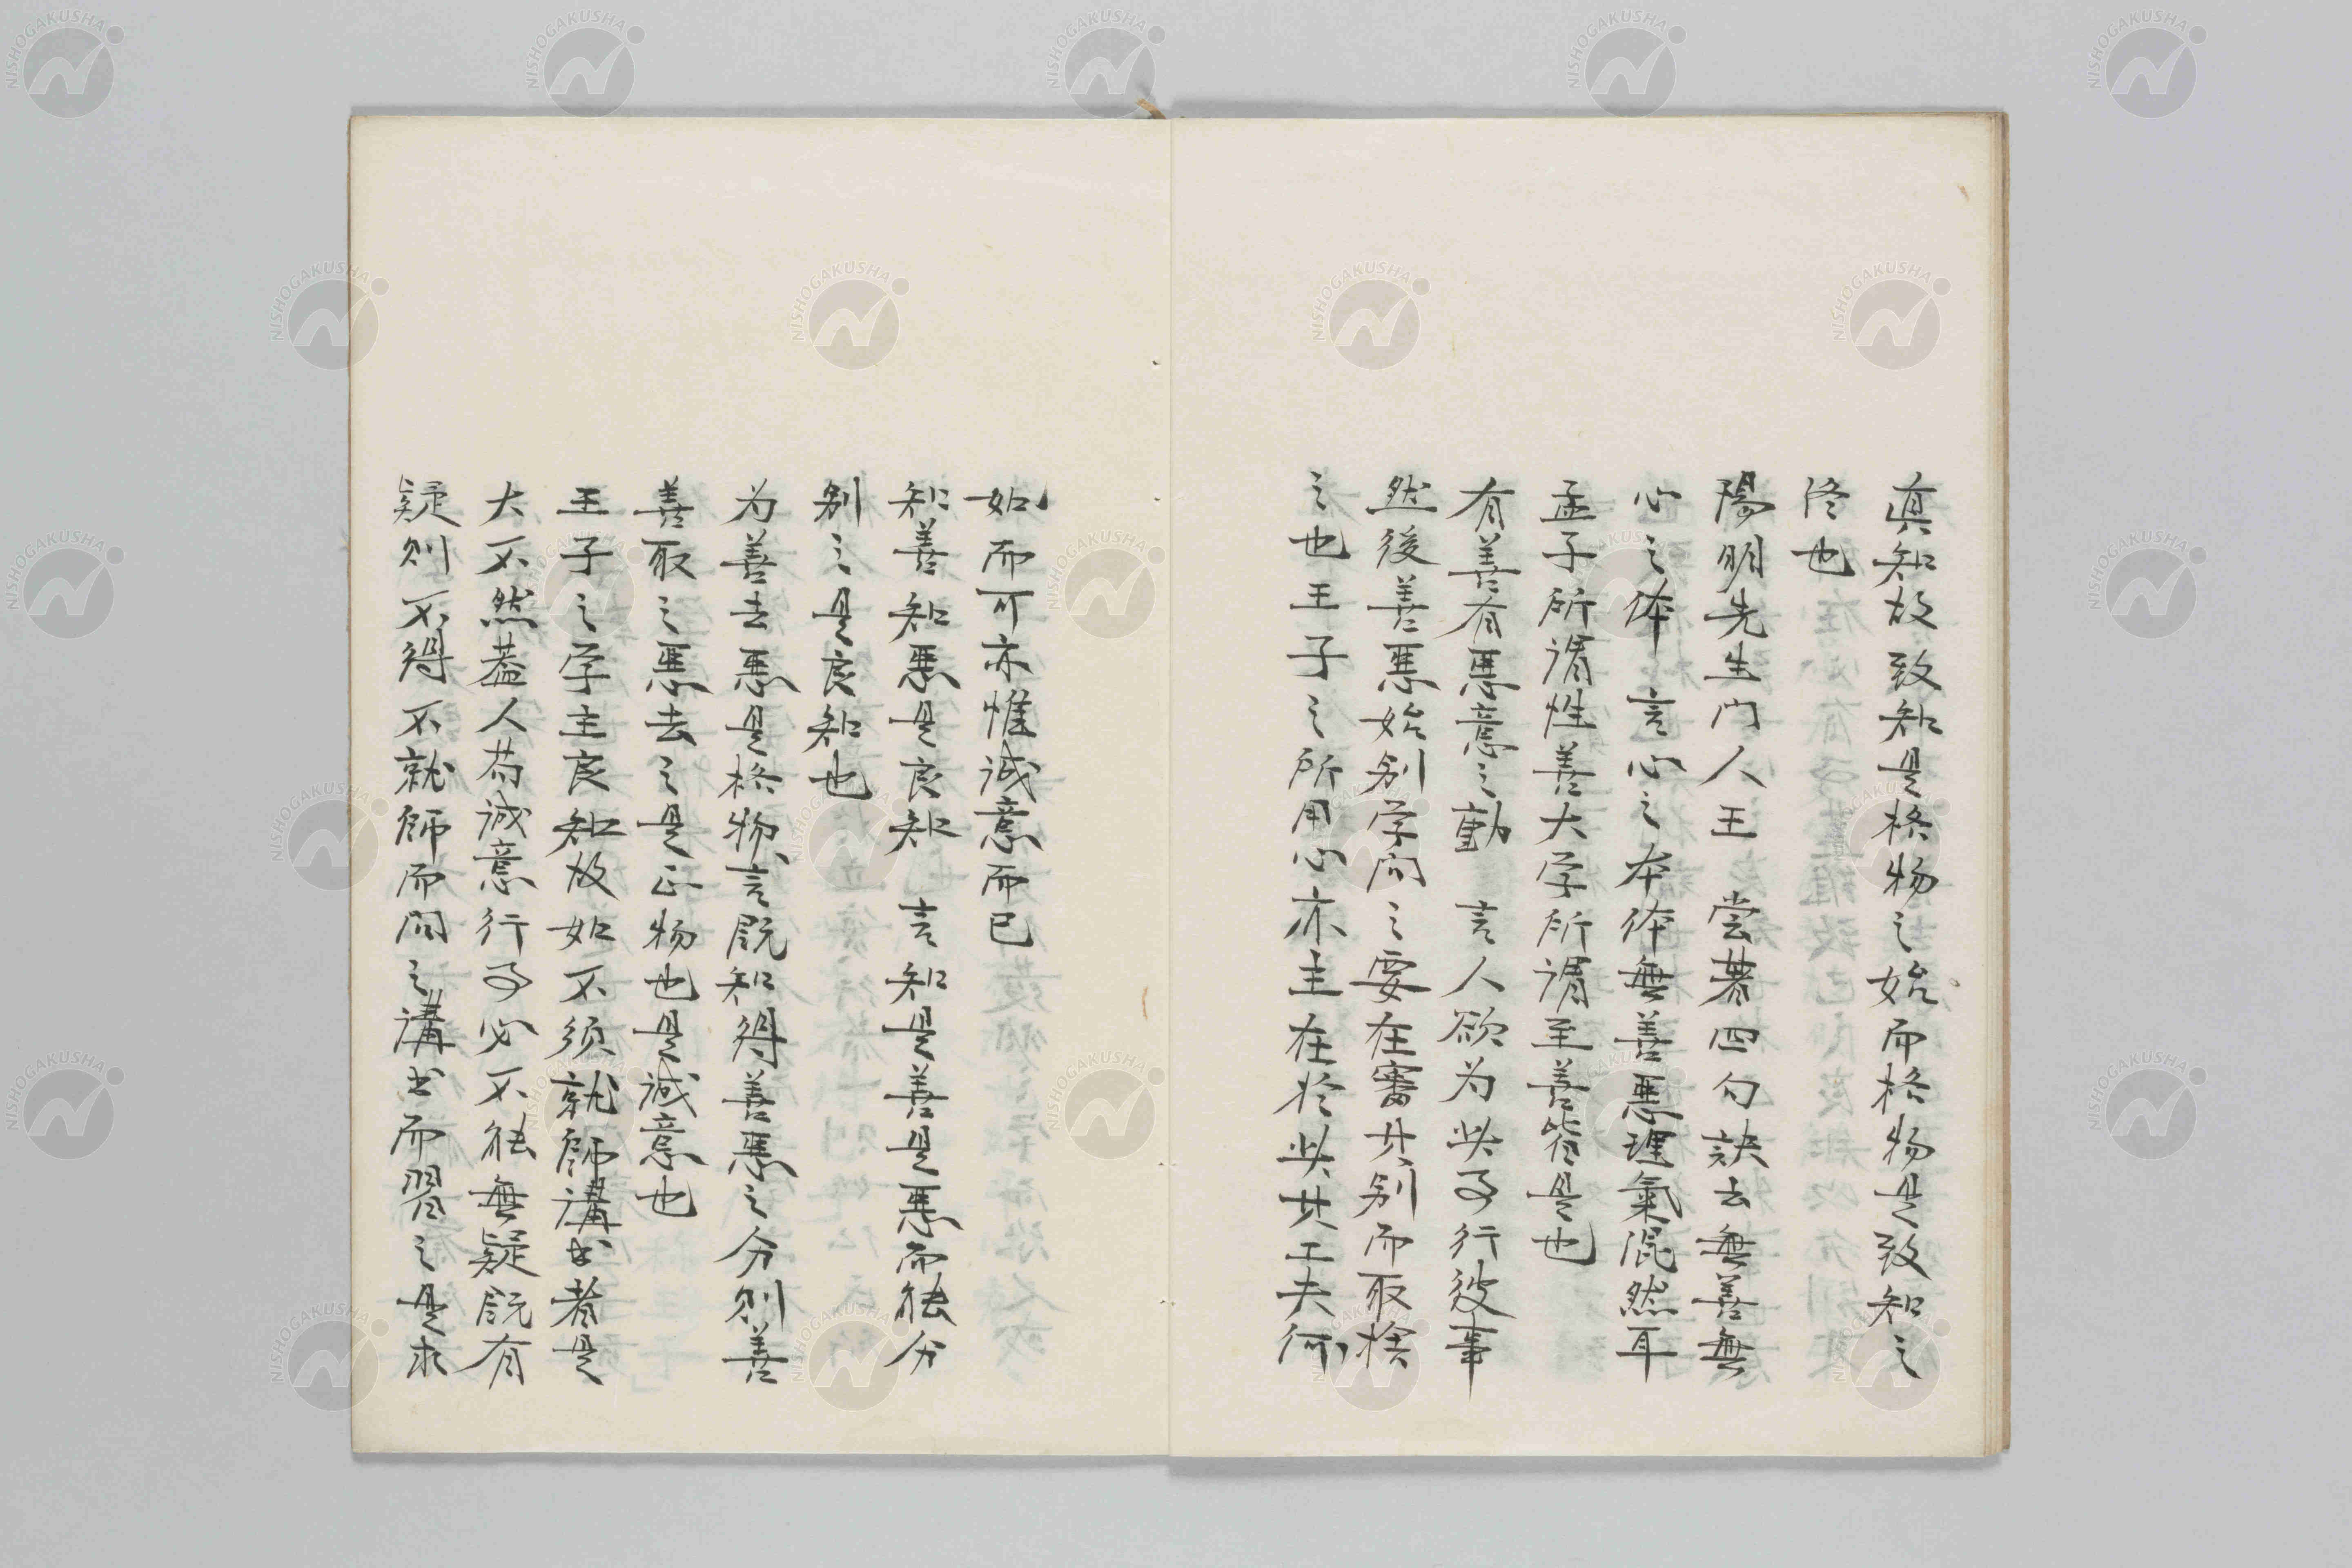 真知故致知是格物之始而格物是致知之
終也
陽明先生門人王　嘗著四句訣云無善無
心之体　言心之本体無善惡理氣混然耳
孟子所謂性善大学所謂至善皆是也
有善有惡意之動　言人欲为此事行彼事
然後善惡始别学问之要在審其别而取捨
之也王子之所用心亦主在於此其工夫何
如而可亦惟誠意而已
知善知惡是良知　言知是善是惡而能分
别之是良知也
为善去惡是格物言既知得善惡之分則善
善取之惡去之是正物也是誠意也
王子之学主良知故如不須就師講书者是
大不然蓋人苟誠意行事必不能無疑既有
疑則不得不就師而问之講书而習之是求
NISHOGAKUSHA